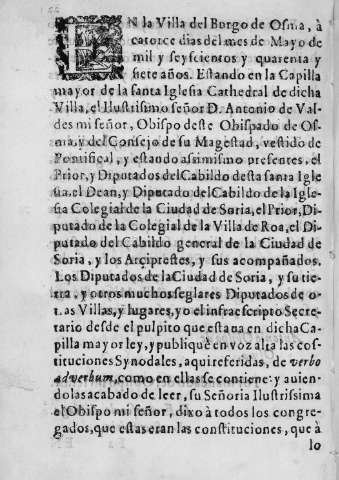 EN la Villa del Burgo de Osma, à
catorce dias del mes de Mayo de
mil y seyscientos y quarenta y
siete años. Estando en la Capilla
mayor de la santa Iglesia Cathedral de dicha
Villa, el Ilustrisimo señor D. Antonio de Val-
des mi señor, Obispo deste Obispado de Os-
ma, y del Consejo de su Magestad, vestido de
Pontifical, y estando assimismo presentes, el
Prior, y Diputados del Cabildo desta santa Igle
sia, el Dean, y Diputado del Cabildo de la Igle-
sia Colegial de la Ciudad de Soria, el Prior, Di-
putado de la Colegial de la Villa de Roa, el Di-
putado del Cabildo general de la Ciudad de
Soria, y los Arciprestes, y sus acompañados.
Los Diputados de la Ciudad de Soria, y su tie-
rra, y otros muchos seglares Diputados de o-
tras Villas, y lugares, yo el infraescripto Secre-
tario desde el pulpito que estaua en dicha Ca-
pilla mayor ley, y publiquè en voz alta las cos-
tituciones Synodales, aqui referidas, de verbo
ad verbum, como en ellas se contiene: y auien-
dolas acabado de leer, su Señoria Ilustrissima
el Obispo mi señor, dixo à todos los congre-
gados, que estas eran las constituciones, que à
lo